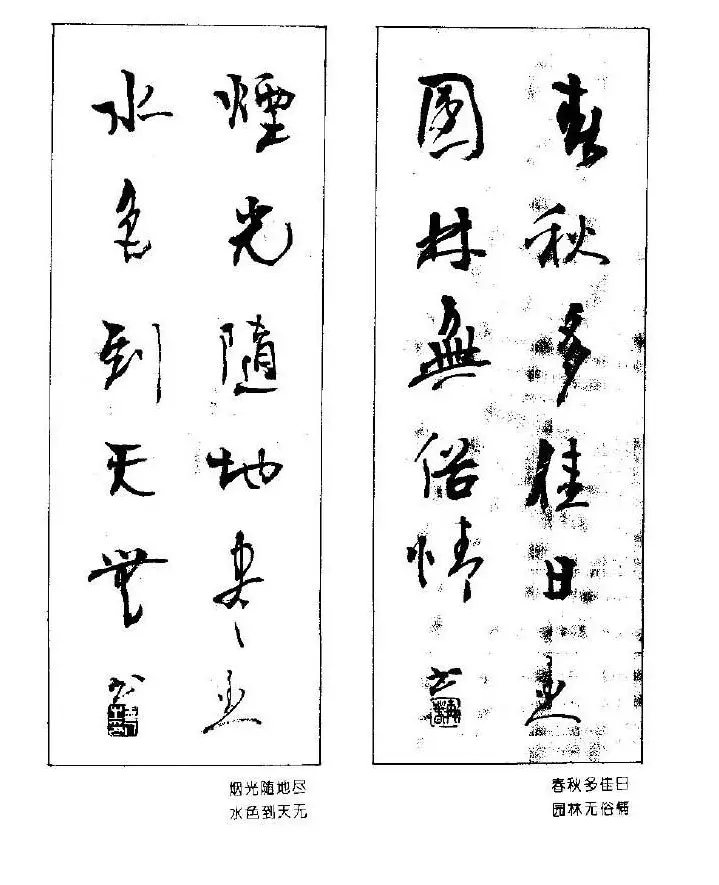 春秋多佳日
園林無俗情
书
春秋多佳日
园林无俗情
煙光隨地尽
水色到天無
书
烟光随地尽
水色到天无